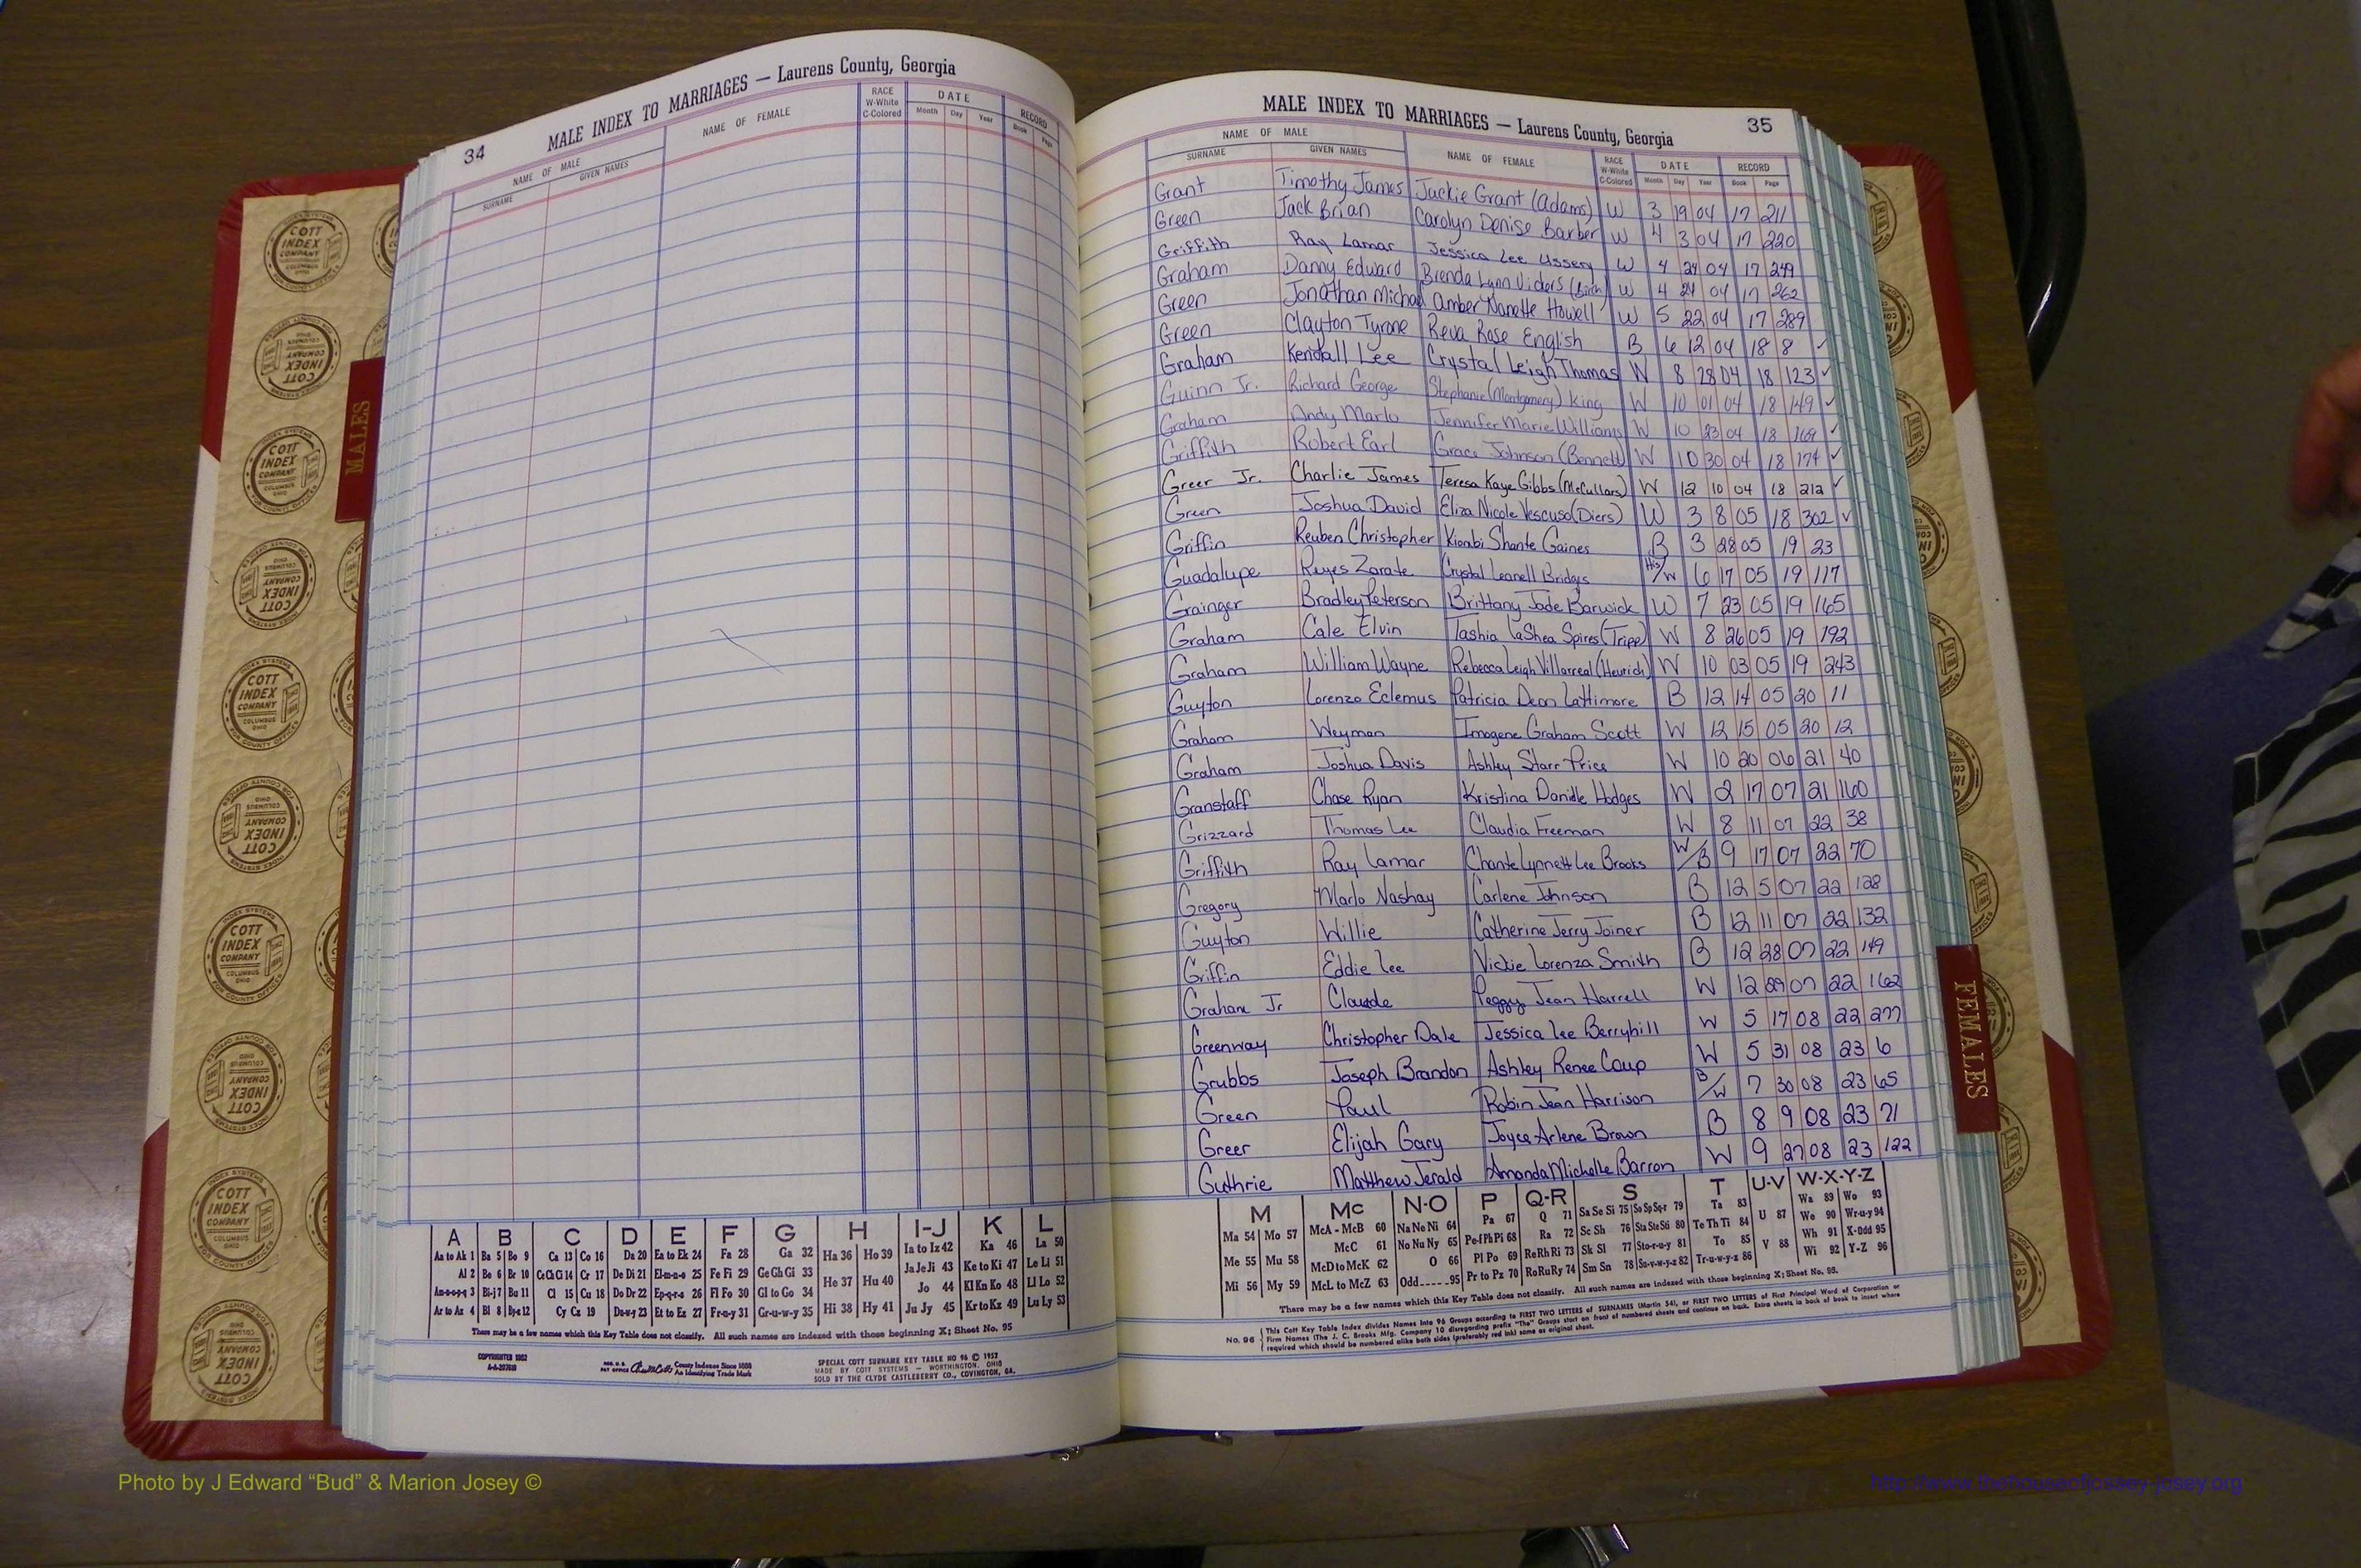 34
MALE INDEX TO MARRIAGES — Laurens County, Georgia
NAME OF MALE
SURNAME GIVEN NAMES
NAME OF FEMALE
RACE
W-White
C-Colored
DATE
Month Day Year
RECORD
Book Page
MALES
MALE INDEX TO MARRIAGES — Laurens County, Georgia 35
NAME OF MALE
SURNAME GIVEN NAMES
NAME OF FEMALE
RACE
W-White
C-Colored
DATE
Month Day Year
RECORD
Book Page
Grant Timothy James Jackie Grant (Adams) W 3 19 04 17 211
Green Jack Brian Carolyn Denise Barber W 4 3 04 17 220
Griffith Ray Lamar Jessica Lee Ussery W 4 24 04 17 249
Graham Danny Edward Brenda Lynn Vickers (Birch) W 4 24 04 17 262
Green Jonathan Michael Amber Nanette Howell W 5 22 04 17 289
Green Clayton Tyrone Reva Rose English B 6 12 04 18 8
Graham Kendall Lee Crystal Leigh Thomas W 8 28 04 18 123
Guinn Jr. Richard George Stephanie (Montgomery) King W 10 01 04 18 149
Graham Andy Marlo Jennifer Marie Williams W 10 23 04 18 169
Griffith Robert Earl Grace Johnson (Bennett) W 10 30 04 18 174
Greer Jr. Charlie James Teresa Kaye Gibbs (McCullars) W 12 10 04 18 212
Green Joshua David Eliza Nicole Vescuso (Diers) W 3 8 05 18 302
Griffin Reuben Christopher Kionbi Shante Gaines B 3 28 05 19 23
Guadalupe Reyes Zarate Crystal Leanell Bridges His/W 6 17 05 19 117
Grainger Bradley Peterson Brittany Jade Barwick W 7 23 05 19 165
Graham Cale Elvin Tashia LaShea Spires (Tripp) W 8 26 05 19 192
Graham William Wayne Rebecca Leigh Villarreal (Heurich) W 10 03 05 19 243
Guyton Lorenzo Eclemus Patricia Dean Lattimore B 12 14 05 20 11
Graham Weyman Imogene Graham Scott W 12 15 05 20 12
Graham Joshua Davis Ashley Starr Price W 10 20 06 21 40
Granstaff Chase Ryan Kristina Danielle Hodges W 2 17 07 21 160
Grizzard Thomas Lee Claudia Freeman W 8 11 07 22 38
Griffith Ray Lamar Chante Lynnett Lee Brooks W/B 9 17 07 22 70
Gregory Marlo Nashay Carlene Johnson B 12 5 07 22 128
Guyton Willie Catherine Jerry Joiner B 12 11 07 22 132
Griffin Eddie Lee Vickie Lorenza Smith B 12 28 07 22 149
Graham Jr Claude Peggy Jean Harrell W 12 29 07 22 162
Greenway Christopher Dale Jessica Lee Berryhill W 5 17 08 22 277
Grubbs Joseph Brandon Ashley Renee Coup W 5 31 08 23 6
Green Paul Robin Jean Harrison B/W 7 30 08 23 65
Greer Elijah Gary Joyce Arlene Brown B 8 9 08 23 71
Guthrie Matthew Jerald Amanda Michelle Barron W 9 27 08 23 122
FEMALES
A B C D E F G H I-J K L
Aa to Ak 1 Ba 5 Bo 9 Ca 13 Co 16 Da 20 Ea to Ek 24 Fa 28 Ga 32 Ha 36 Ho 39 Ia to Iz 42 Ka 46 La 50
Al 2 Be 6 Br 10 Ce Ch Ci 14 Cr 17 De Di 21 El-m-n-o 25 Fe Fi 29 Ge Gh Gi 33 He 37 Hu 40 Ja Je Ji 43 Ke to Ki 47 Le Li 51
Am-n-o-p-q 3 Bi-j 7 Bu 11 Cl 15 Cu 18 Do Dr 22 Ep-q-r-s 26 Fl Fo 30 Gl to Go 34 Jo 44 Kl Kn Ko 48 Ll Lo 52
Ar to Az 4 Bl 8 By-z 12 Cy Cz 19 Du-w-y 23 Et to Ez 27 Fr-u-y 31 Gr-u-w-y 35 Hi 38 Hy 41 Ju Jy 45 Kr to Kz 49 Lu Ly 53
There may be a few names which this Key Table does not classify. All such names are indexed with those beginning X; Sheet No. 95
SPECIAL COTT SURNAME KEY TABLE NO 96 © 1957
MADE BY COTT SYSTEMS — WORTHINGTON, OHIO
SOLD BY THE CLYDE CASTLEBERRY CO., COVINGTON, GA.
County Indexes Since 1888
An Identifying Trade Mark
M Mc N-O P Q-R S T U-V W-X-Y-Z
Ma 54 Mo 57 McA - McB 60 Na Ne Ni 64 Pa 67 Q 71 Sa Se Si 75 So Sp Sq-r 79 Ta 83 U 87 Wa 89 Wo 93
Me 55 Mu 58 McC 61 No Nu Ny 65 Pe-f Ph Pi 68 Ra 72 Sc Sh 76 Sta Ste Sti 80 Te Th Ti 84 We 90 Wr-u-y 94
McD to McK 62 O 66 Pl Po 69 Re Rh Ri 73 Sk Sl 77 Sto-r-u-y 81 To 85 V 88 Wh 91 X-Odd 95
Mi 56 My 59 McL to McZ 63 Odd 95 Pr to Pz 70 Ro Ru Ry 74 Sm Sn 78 Su-v-w-y-z 82 Tr-u-w-y-z 86 Wi 92 Y-Z 96
There may be a few names which this Key Table does not classify. All such names are indexed with those beginning X; Sheet No. 95.
No. 96
This Cott Key Table Index divides Names into 96 Groups according to FIRST TWO LETTERS of SURNAMES (Martin 54), or FIRST TWO LETTERS of First Principal Word of Corporation or
Firm Names (The J. C. Brooks Mfg. Company 10 disregarding prefix "The" Groups start on front of numbered sheets and continue on back. Extra sheets in back of book to insert where
required which should be numbered alike both sides (preferably red ink) same as original sheet.
COTT INDEX COMPANY
COLUMBUS OHIO
INDEX SYSTEMS
FOR COUNTY OFFICES
Photo by J Edward “Bud” & Marion Josey ©
http://www.thehouseofjossey-josey.org